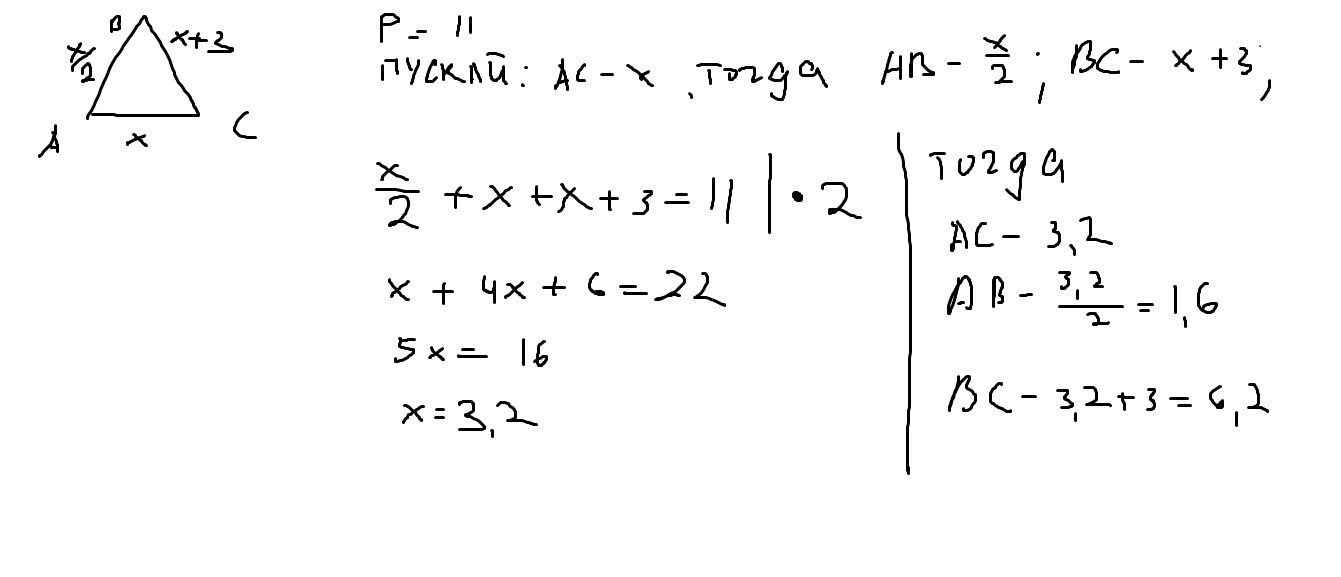 B
x/2
x+3
A
x
C
P - 11
ПУСКАЙ: AC - x, тогда AB - x/2; BC - x + 3;
x/2 + x + x + 3 = 11 | • 2
x + 4x + 6 = 22
5x = 16
x = 3,2
Тогда
AC - 3,2
AB - 3,2/2 = 1,6
BC - 3,2 + 3 = 6,2